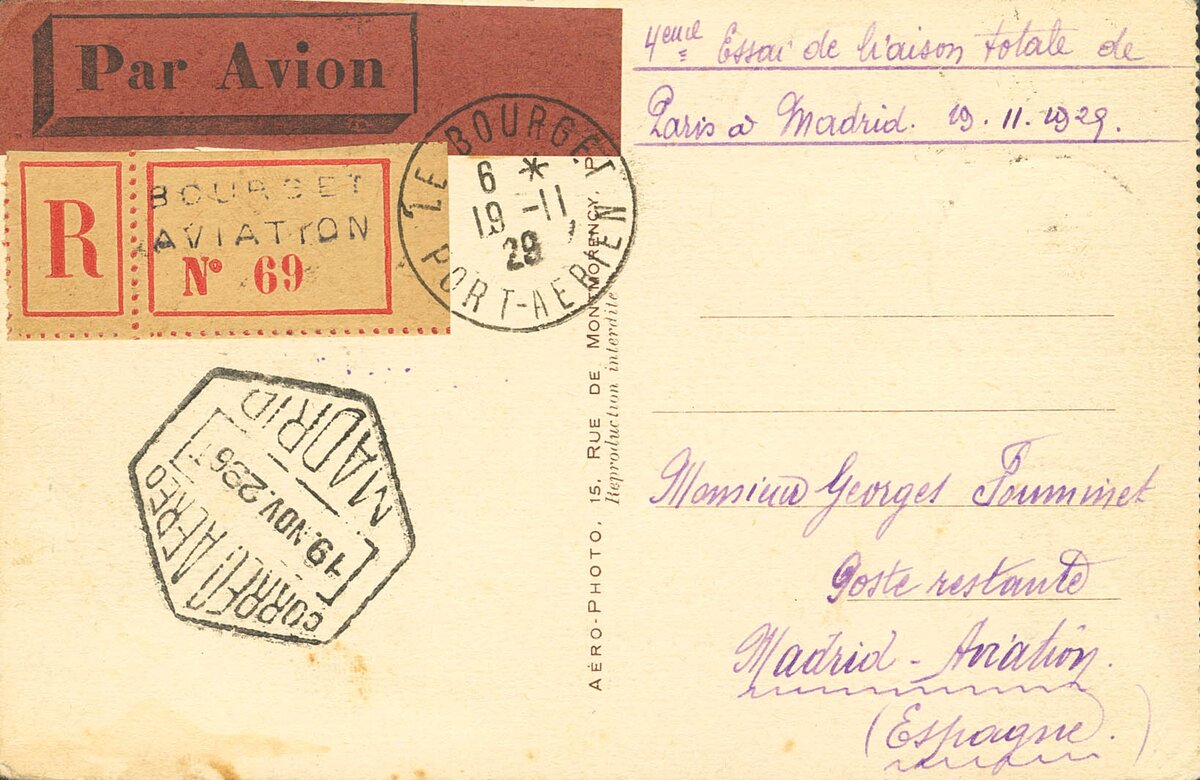 Par Avion
R
BOURGET
AVIATION
Nº 69
LE BOURGET
6 *
19 -11
29
PORT-AERIEN
4eme Essai de liaison totale de
Paris à Madrid. 19.11.1929.
AÉRO-PHOTO, 15, RUE DE MONTMORENCY, P
Reproduction interdite
CORREO AEREO
19.NOV.29
MADRID
MADRID
Monsieur Georges Fouminet
Poste restante
Madrid-Aviation.
(Espagne.)